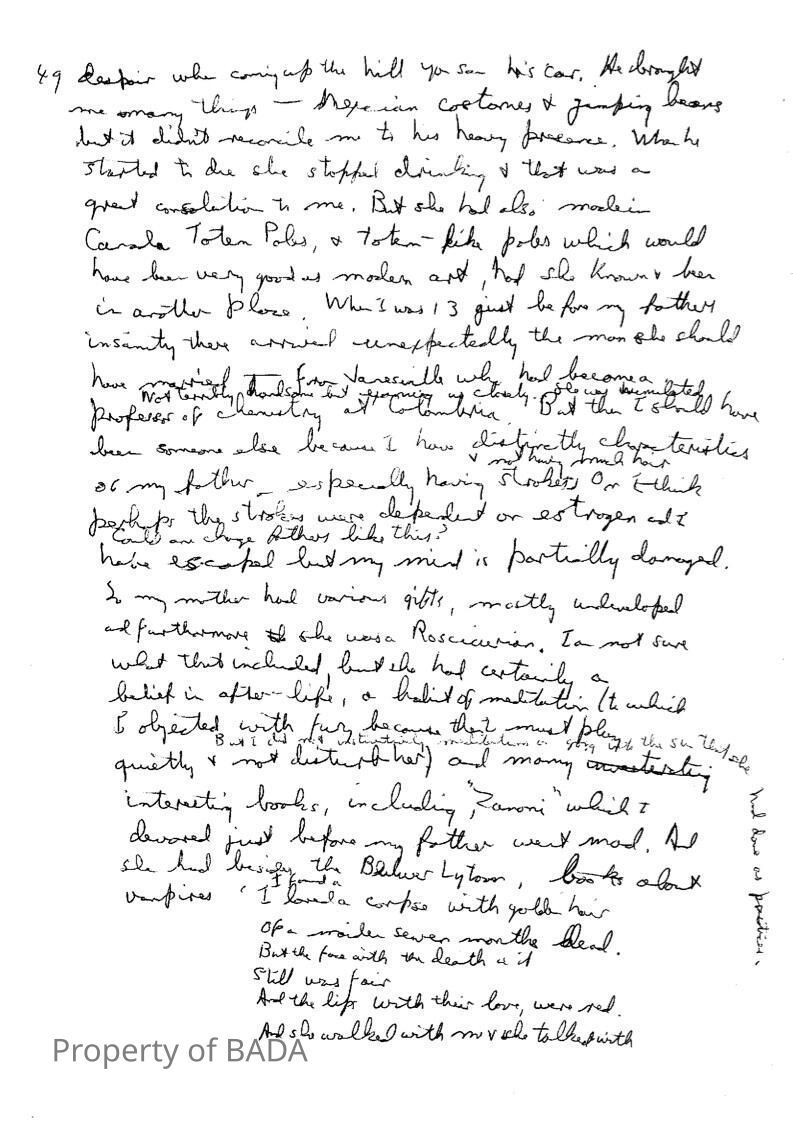 49 despair when coming up the hill you saw his car. He brought
me many things — Mexican costumes & jumping beans
but it didn't reconcile me to his heavy presence. When he
started to die she stopped drinking & that was a
great consolation to me. But she had also made in
Canada Totem Poles, & totem-like poles which would
have been very good as modern art, had she known & been
in another place. When I was 13 just before my fathers
insanity there arrived unexpectedly the man she should
have married — from Janesville who had become a
Not terribly handsome but examining us closely. She was
professor of chemistry at Columbia. But then I should have
been someone else because I have distinctly characteristics
& not having much hair
of my father — especially having strokes. Or I think
perhaps the strokes were dependent on estrogen and I
Could one change fathers like this?
have escaped but my mind is partially damaged.
So my mother had various gifts, mostly undeveloped
and furthermore she was a Roscicurian. I am not sure
what that included, but she had certainly a
belief in after-life, a habit of meditation (to which
I objected with fury because that must play
But I did not meditation or going into the sun that she
had done as practices.
quietly & not disturb her) and many
interesting books, including, "Zanoni" which I
devoured just before my father went mad. And
she had besides the Bulwer Lytton, books about
vampires 'I loved a corpse with golden hair
I found a
Of a maiden seven months dead.
But the face with the death in it
Still was fair
And the lips with their love, were red.
And she walked with me & she talked with
Property of BADA